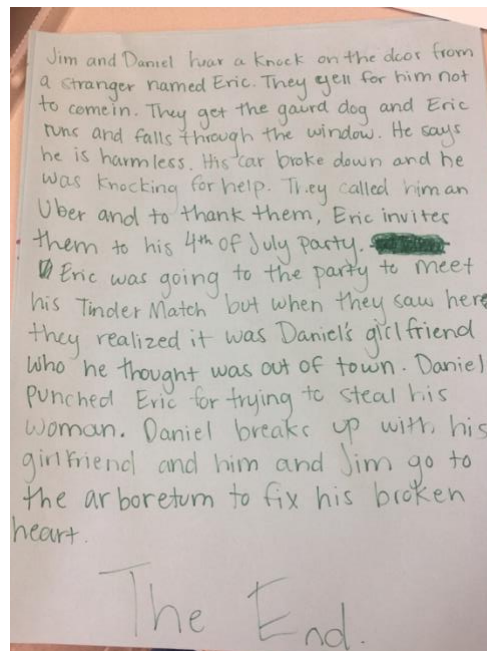 Jim and Daniel hear a knock on the door from
a stranger named Eric. They yell for him not
to come in. They get the gaurd dog and Eric
runs and falls through the window. He says
he is harmless. His car broke down and he
was knocking for help. They called him an
Uber and to thank them, Eric invites
them to his 4th of July party.
Eric was going to the party to meet
his Tinder Match but when they saw here
they realized it was Daniel's girlfriend
who he thought was out of town. Daniel
punched Eric for trying to steal his
woman. Daniel breaks up with his
girlfriend and him and Jim go to
the arboretum to fix his broken
heart.
The End.